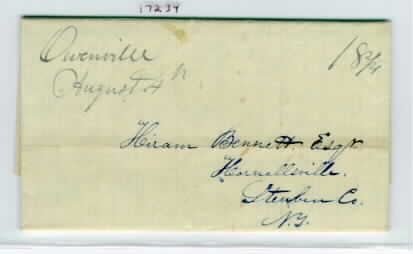 17234
Owenville
August 4th
18 3/4
Hiram Bennett Esqr
Hornellsville.
Steuben Co.
N.Y.